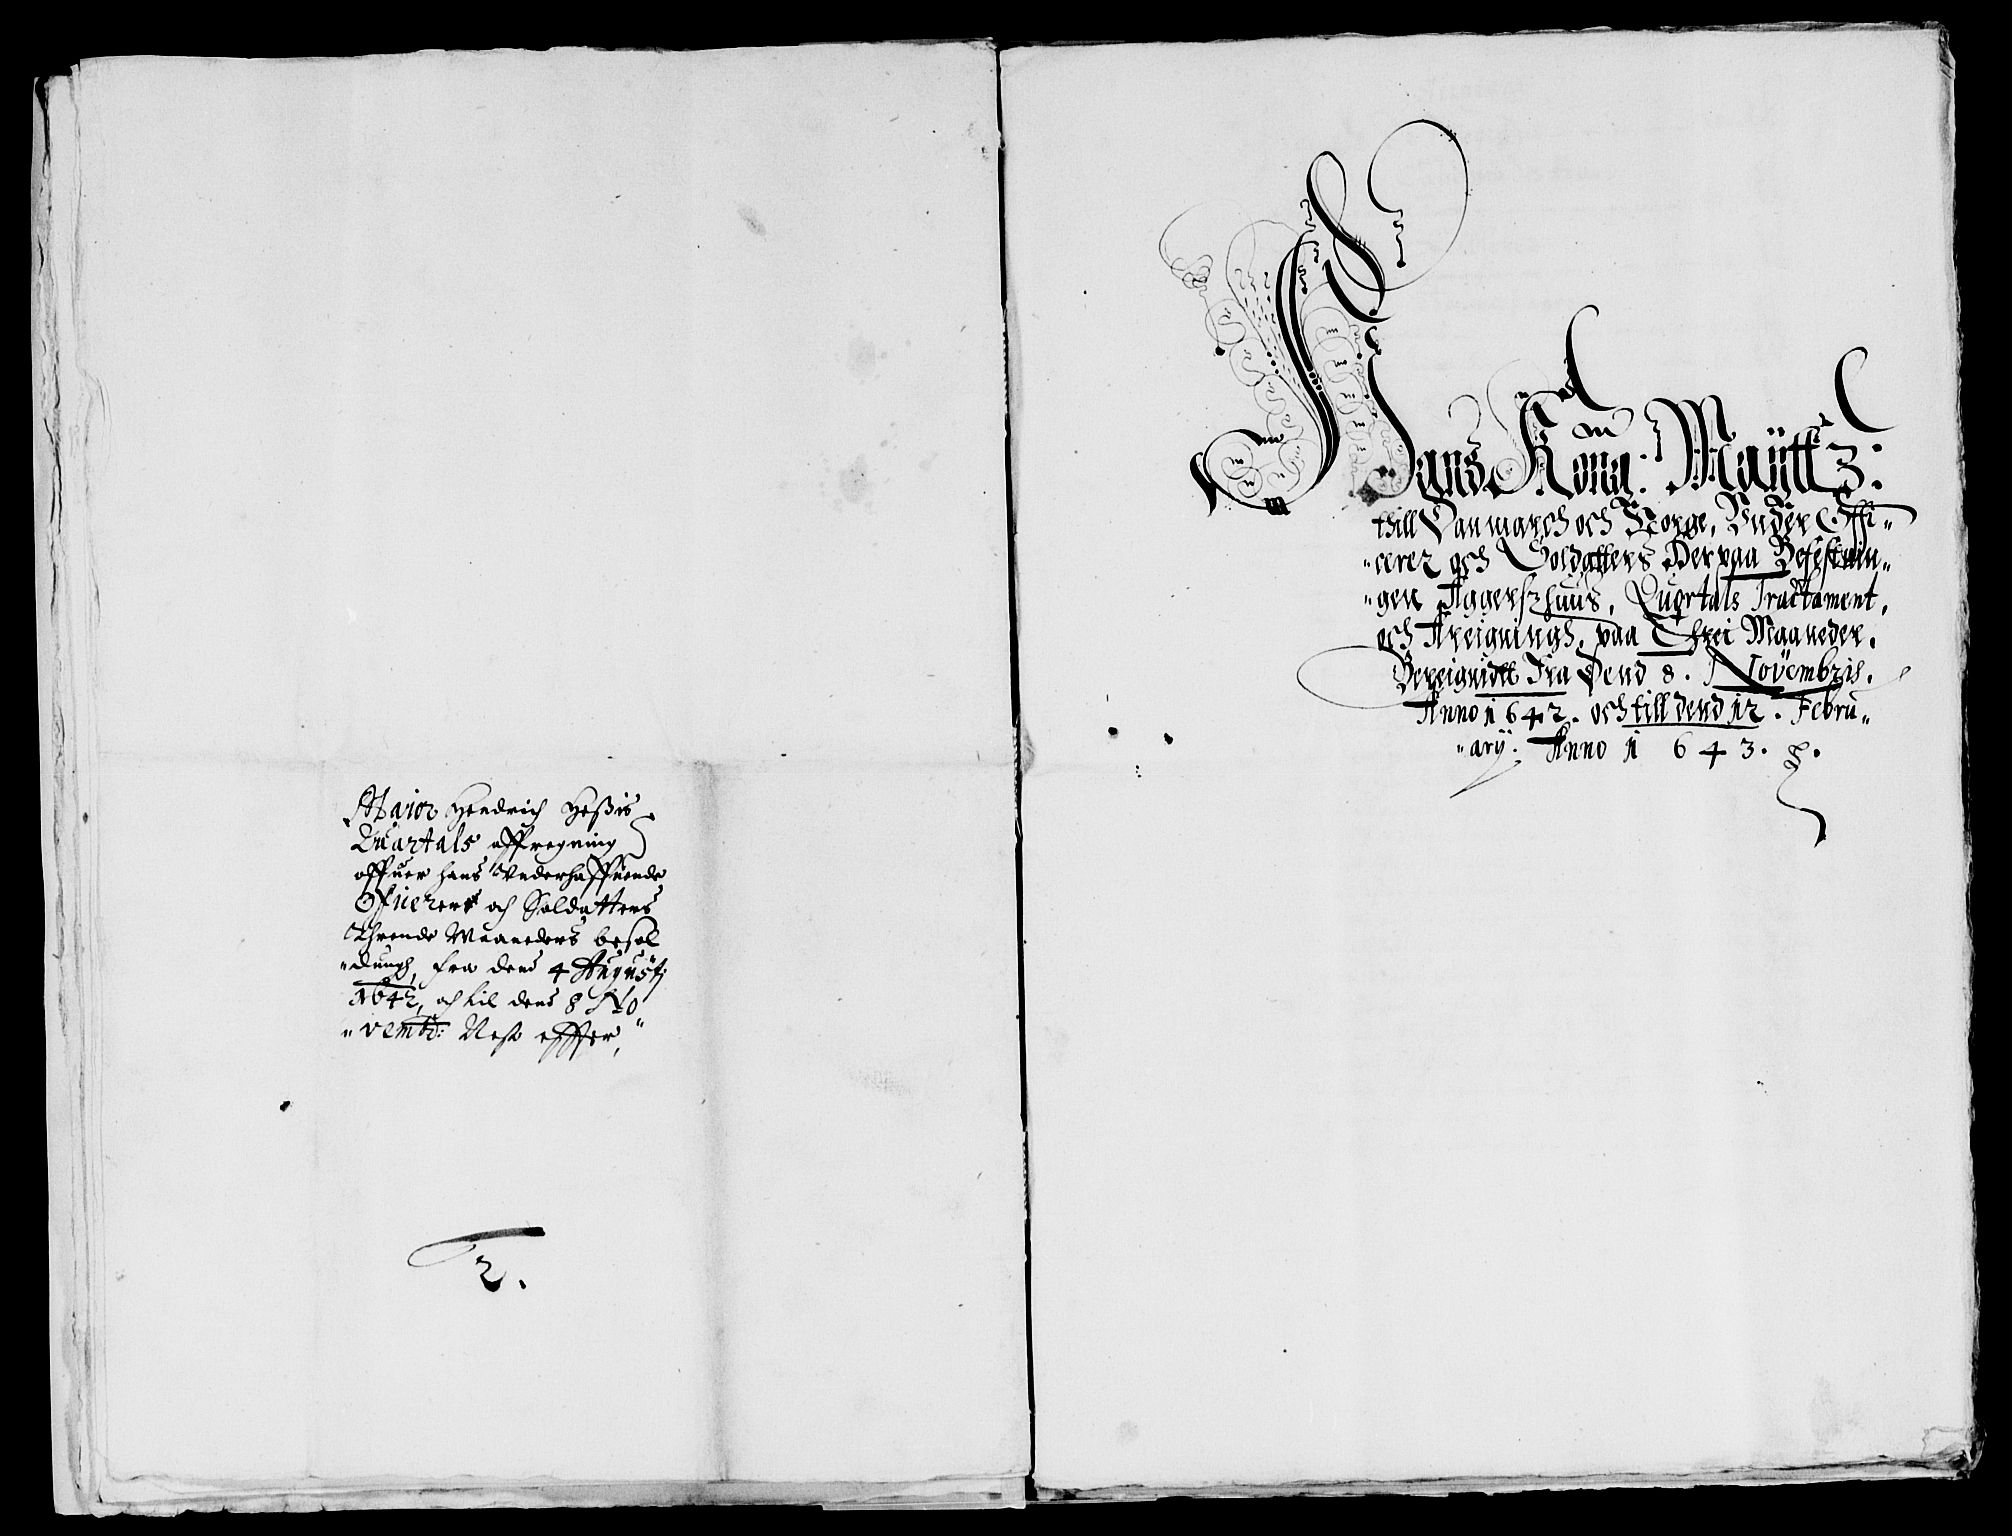 Maior Hendrich Heßis
Quartals affregning
offuer hans Vnderhaffuende
Officerer och Soldatters
Thrende Maaneders besol
-dungh, fra dend 4 Augustj
1642, och til dend 8 No
-vemb: Nest effter,
2.
Hans Kong: Maÿttz:
thill Danmarch och Norge, Vnder Offi-
-cerer och Soldatters Der paa Befestnin-
-gen Aggerszhuus, Quortals Tractament,
och Afreigningh, paa Threi Maaneder.
Bereignidtt Fra Dend 8. Novembris.
Anno 1642. och till dend 12. Febru-
-arÿ. Anno 1643.